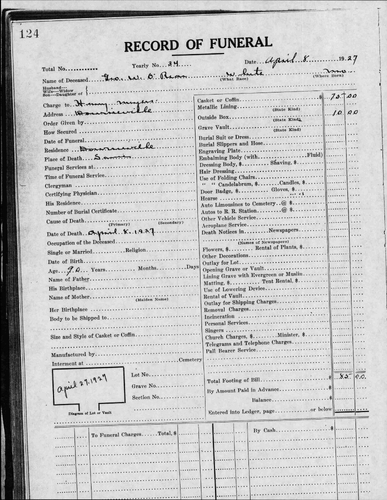 124
RECORD OF FUNERAL
Total No. Yearly No. 34 Date April 8 1927
Name of Deceased Geo. W. White Mo.
(What Race) (Where Born)
Husband—
Wife—Widow
Son—Daughter of
Charge to Henry
Address
Order Given by
How Secured
Date of Funeral
Residence
Place of Death Same
Funeral Services at
Time of Funeral Service
Clergyman
Certifying Physician
His Residence
Number of Burial Certificate
Cause of Death
(Primary) (Secondary)
Date of Death April 8, 1927
Occupation of the Deceased
Single or Married Religion
Date of Birth
Age 90 Years Months Days
Name of Father
His Birthplace
Name of Mother
(Maiden Name)
Her Birthplace
Body to be Shipped to
Size and Style of Casket or Coffin
Manufactured by
Interment at Cemetery
April 27, 1929
Diagram of Lot or Vault
Lot No.
Grave No.
Section No.
Casket or Coffin $ 75.00
Metallic Lining
(State Kind)
Outside Box 10 00
(State Kind)
Grave Vault
(State Kind)
Burial Suit or Dress
Burial Slippers and Hose
Engraving Plate
Embalming Body (with Fluid)
Dressing Body, $ Shaving, $
Hair Dressing
Use of Folding Chairs
" " Candelabrum, $ Candles, $
Door Badge, $ Gloves, $
Hearse
Auto Limousines to Cemetery @ $
Autos to R. R. Station @ $
Other Vehicle Service
Aeroplane Service
Death Notices in Newspapers
(Names of Newspapers)
Flowers, $ Rental of Plants, $
Other Decorations
Outlay for Lot
Opening Grave or Vault
Lining Grave with Evergreen or Muslin
Matting, $ Tent Rental, $
Use of Lowering Device
Rental of Vault
Outlay for Shipping Charges
Removal Charges
Incineration
Personal Services
Singers
Church Charges, $ Minister, $
Telegrams and Telephone Charges
Pall Bearer Service
Total Footing of Bill $ 85 00
By Amount Paid in Advance
Balance
Entered into Ledger, page or below
To Funeral Charges Total, $ By Cash $